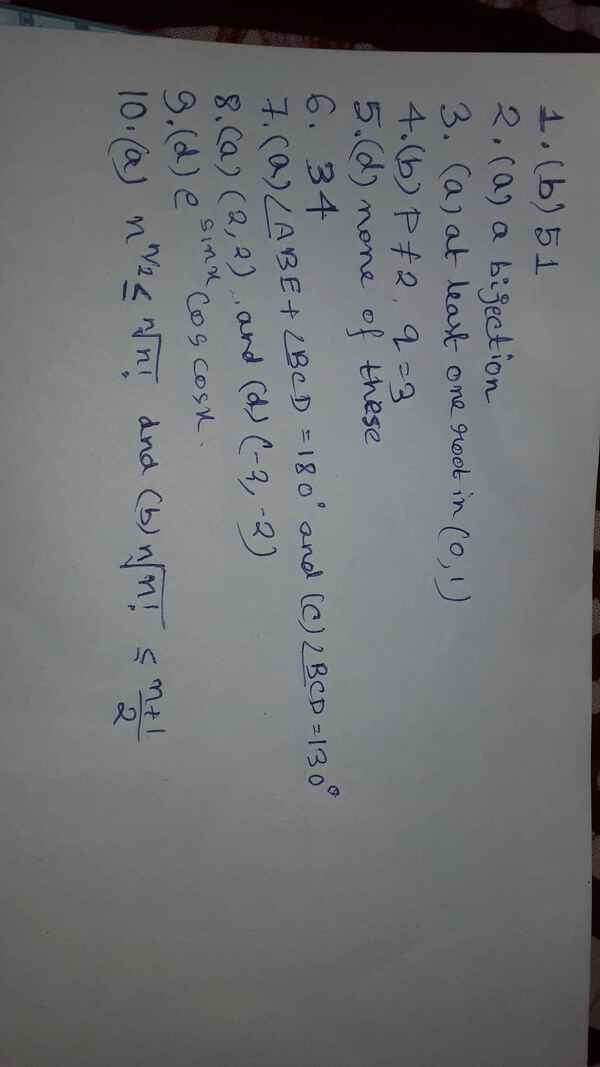 1. (b) 51
2. (a) a bijection
3. (a) at least one root in (0,1)
4. (b) P≠2, q=3
5. (d) none of these
6. 34
7. (a) ∠ABE + ∠BCD = 180° and (C) ∠BCD = 130°
8. (a) (2,2) and (d) (-2,-2)
9. (d) e^sinx cos cosx.
10. (a) n^n/2 ≤ n√n! and (b) n√n! ≤ n+1/2